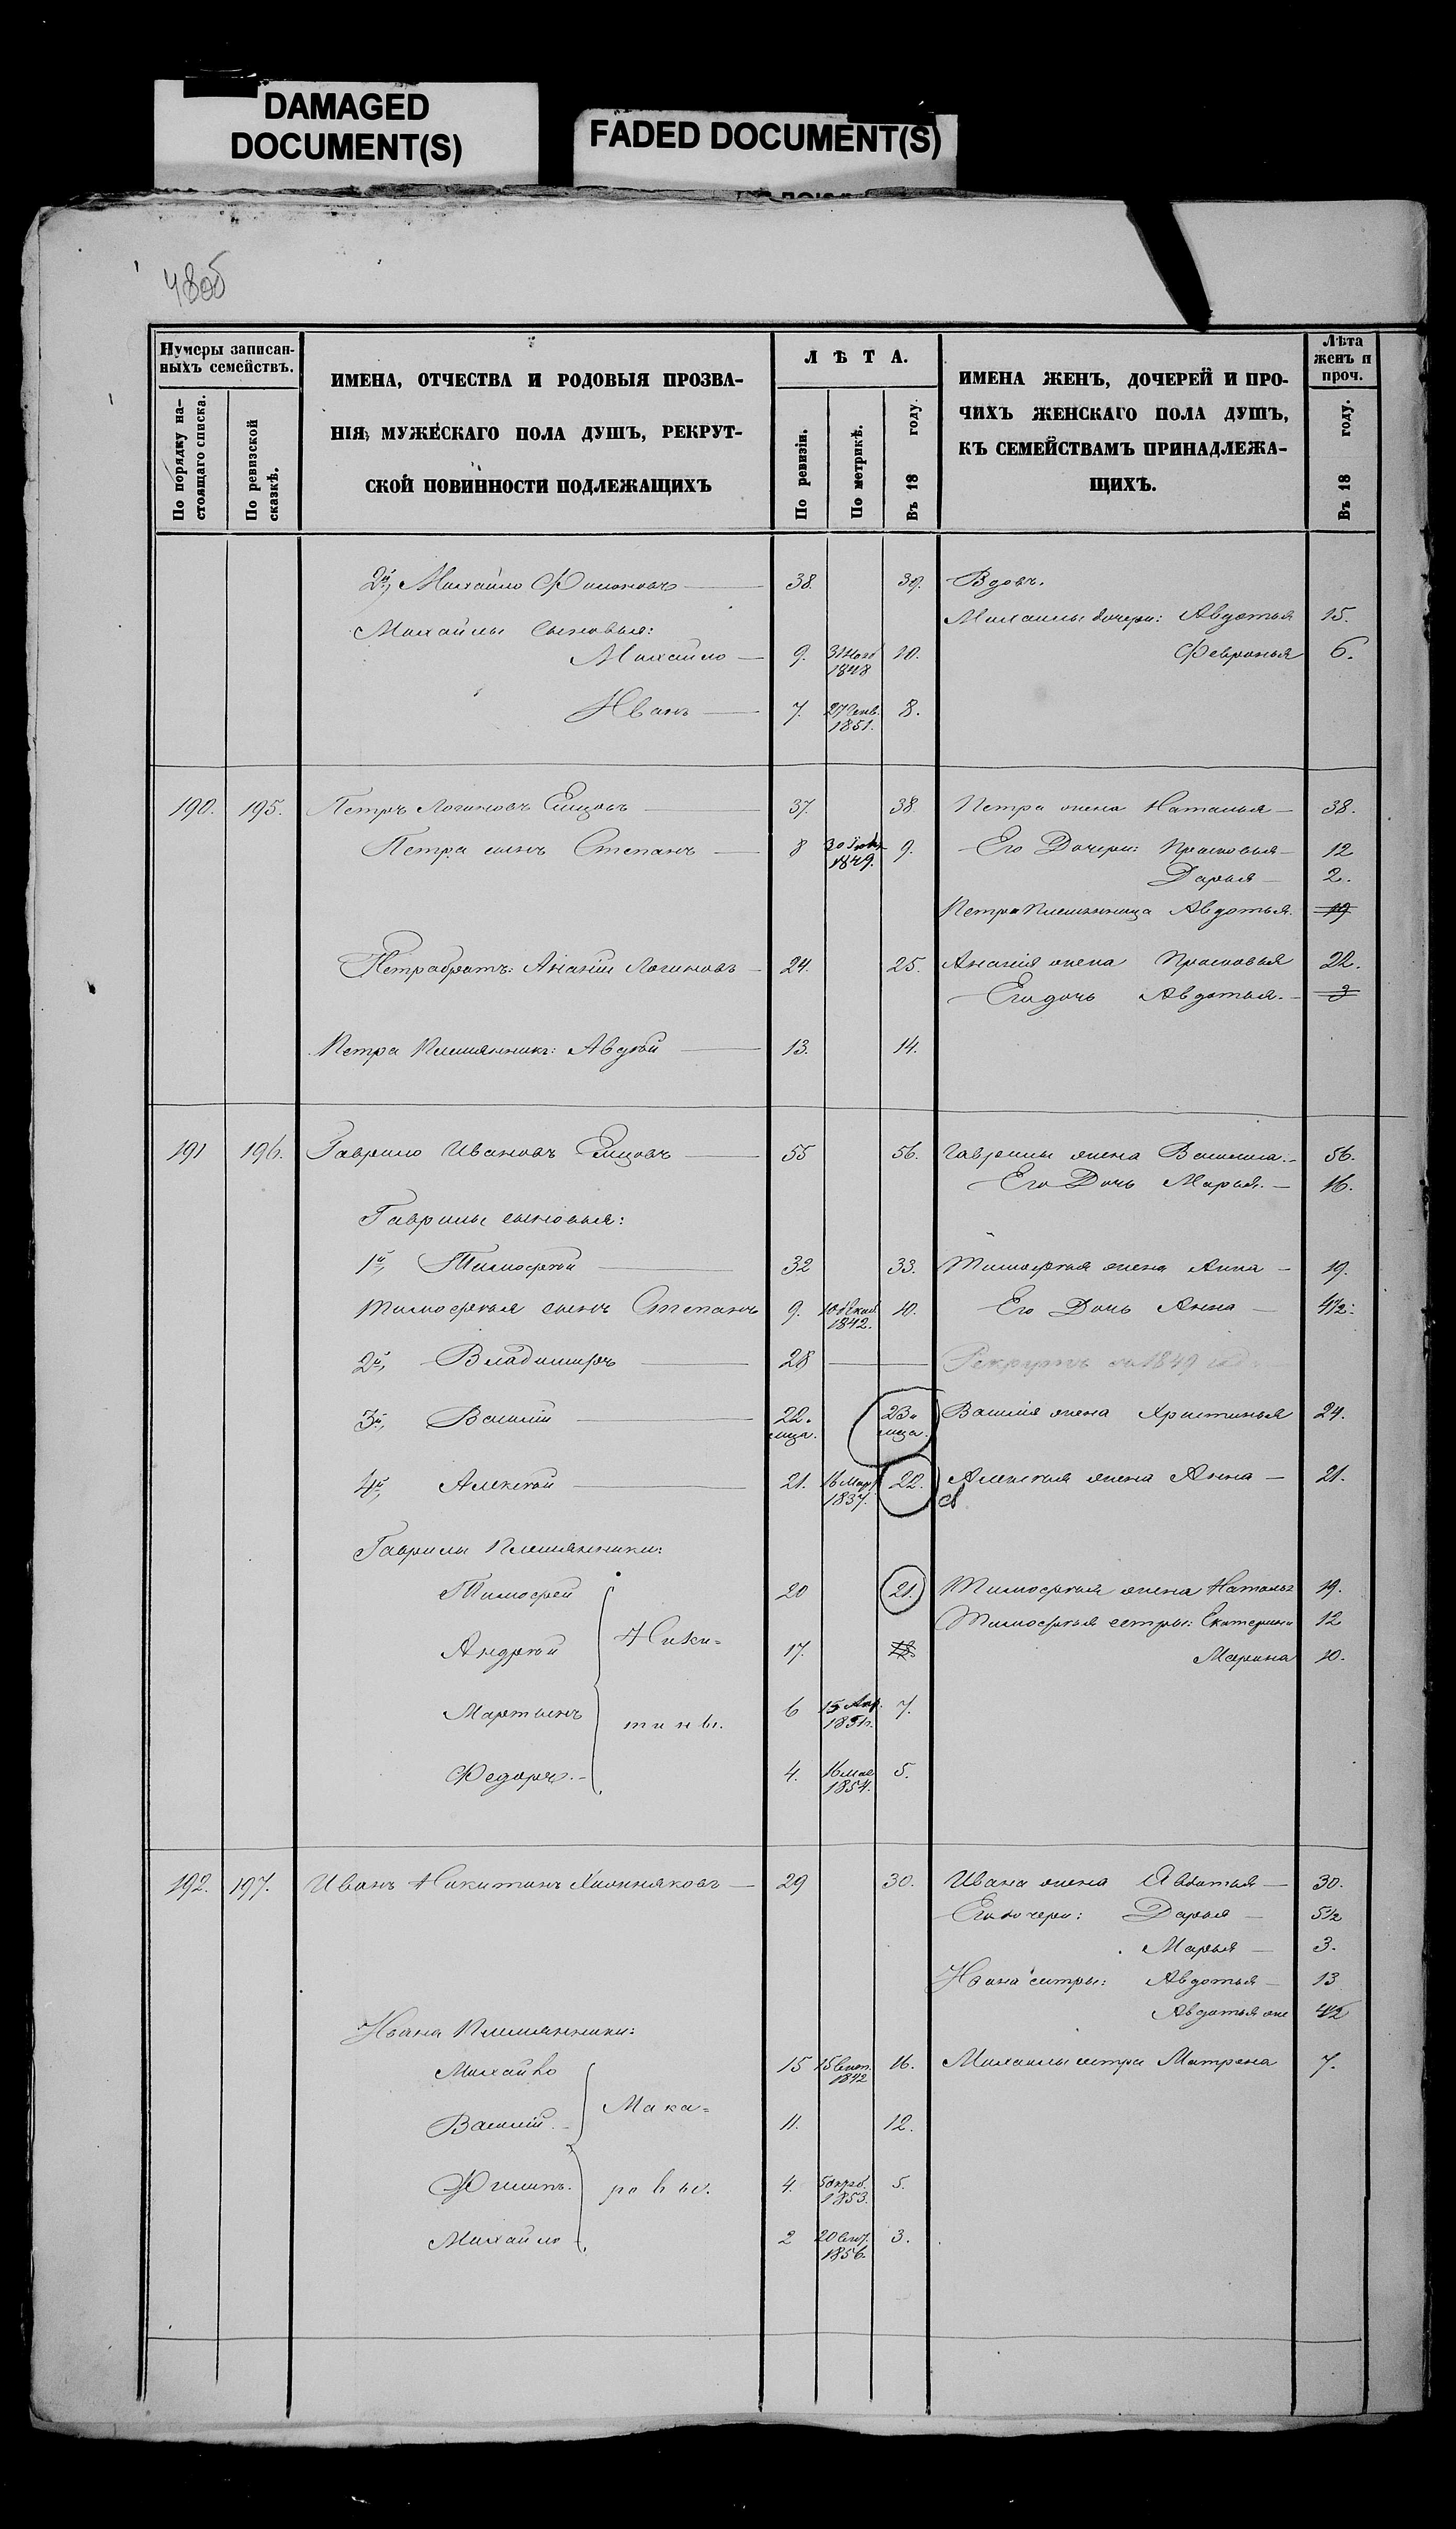 DAMAGED
DOCUMENT(S)
FADED DOCUMENT(S)
48об
Нумеры записан-
ныхъ семействъ.
По порядку на-
стоящаго списка.
По ревизской
сказкѣ.
ИМЕНА, ОТЧЕСТВА И РОДОВЫЯ ПРОЗВА-
НІЯ, МУЖЕСКАГО ПОЛА ДУШЪ, РЕКРУТ-
СКОЙ ПОВИННОСТИ ПОДЛЕЖАЩИХЪ
ЛѢТА.
По ревизіи.
По метрикѣ.
Въ 18 году.
ИМЕНА ЖЕНЪ, ДОЧЕРЕЙ И ПРО-
ЧИХЪ ЖЕНСКАГО ПОЛА ДУШЪ,
КЪ СЕМЕЙСТВАМЪ ПРИНАДЛЕЖА-
ЩИХЪ.
Лѣта
женъ и
проч.
Въ 18 году.
2й, Михайло Филоновъ 38. 39. Вдовъ.
Михайлы сыновья: Михаилы дочери: Авдотья 15.
Михайло 9. 1848 10. Февронья 6.
Иванъ 7. 27 Генв. 1851. 8.
190. 195. Петръ Логиновъ Емцовъ 37. 38. Петра жена Наталья 38.
Петра сынъ Степанъ 8 1849. 9. Его Дочери: Прасковья 12
Дарья 2.
Петра Племянница Авдотья 19
Петра братъ: Ананій Логиновъ 24. 25. Ананія жена Прасковья 22.
Его дочь Авдотья. 3
Петра Племянникъ: Авдѣй 13. 14.
191 196. Гаврило Ивановъ Емцовъ 55 56. Гаврилы жена Василиса 56.
Его Дочь Марья. 16.
Гаврилы сыновья:
1й, Тимофѣй 32 33. Тимофѣя жена Анна 19.
Тимофѣя сынъ Степанъ 9. 1842. 10. Его Дочь Анна 4½.
2й, Владимиръ 28 Рекрутъ въ 1849 году
3й, Василій 22. 23. Василія жена Христинья 24.
4й, Алексѣй 21. 16 Мар. 1837. 22. Алексѣя жена Анна 21.
Гаврилы Племянники:
Тимофей 20 21. Тимофѣя жена Наталья 19.
Тимофѣя сестры: Екатерина 12
Андрѣй Ники= 17. 18. Марина 10.
Мартынъ тины. 6 15 Апр. 1851. 7.
Федоръ. 4. 16 мая 1854. 5.
192. 197. Иванъ Никитинъ 29 30. Ивана жена Авдотья 30.
Его дочери: Дарья 5½
Марья 3.
Ивана сестры: Авдотья 13
Авдотья
Ивана Племянники:
Михайло 15 15 Сент. 1842 16. Михаилы сестра Матрена 7.
Василій Мака= 11. 12.
Филипъ. ровы. 4. 1853. 5.
Михайло 2 20 Сент. 1856. 3.